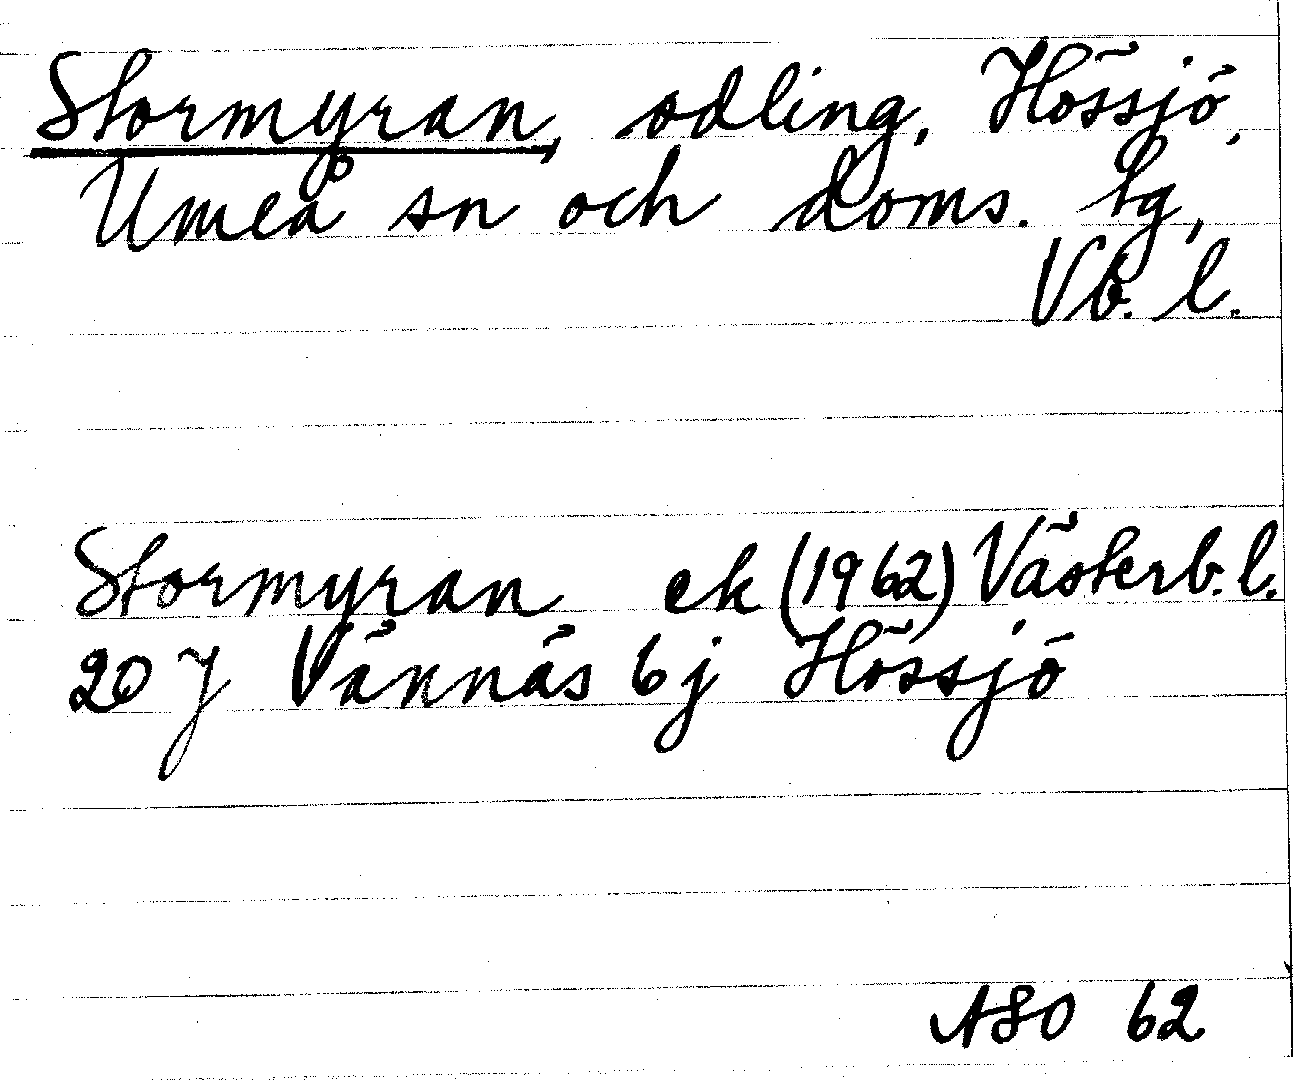 Stormyran, odling, Hössjö,
Umeå sn och doms. tg,
Vb. l.
Stormyran ek (1962) Västerb. l.
20 J Vännäs 6j Hössjö
ASO 62